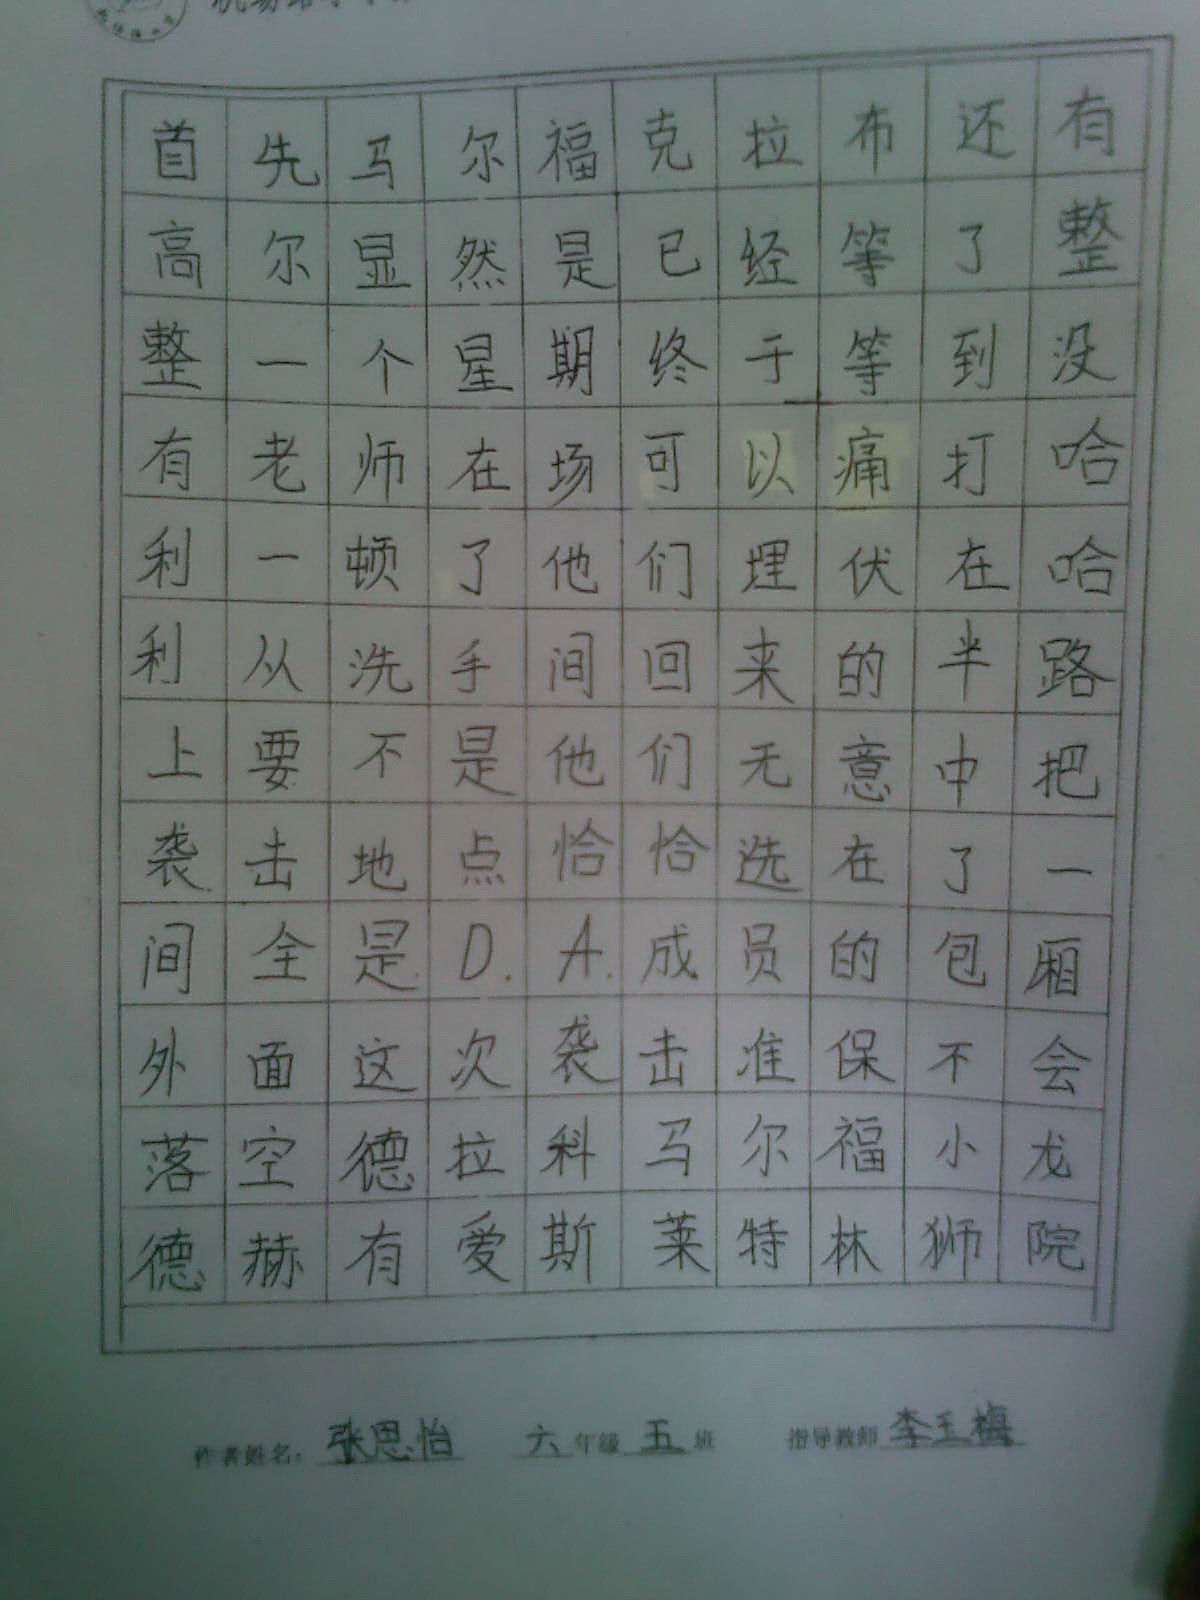 首先马尔福克拉布还有
高尔显然是已经等了整
整一个星期终于等到没
有老师在场可以痛打哈
利一顿了他们埋伏在哈
利从洗手间回来的半路
上要不是他们无意中把
袭击地点恰恰选在了一
间全是D.A.成员的包厢
外面这次袭击准保不会
落空德拉科马尔福小龙
德赫有爱斯莱特林狮院
作者姓名：张恩怡 六年级五班 指导教师李玉梅